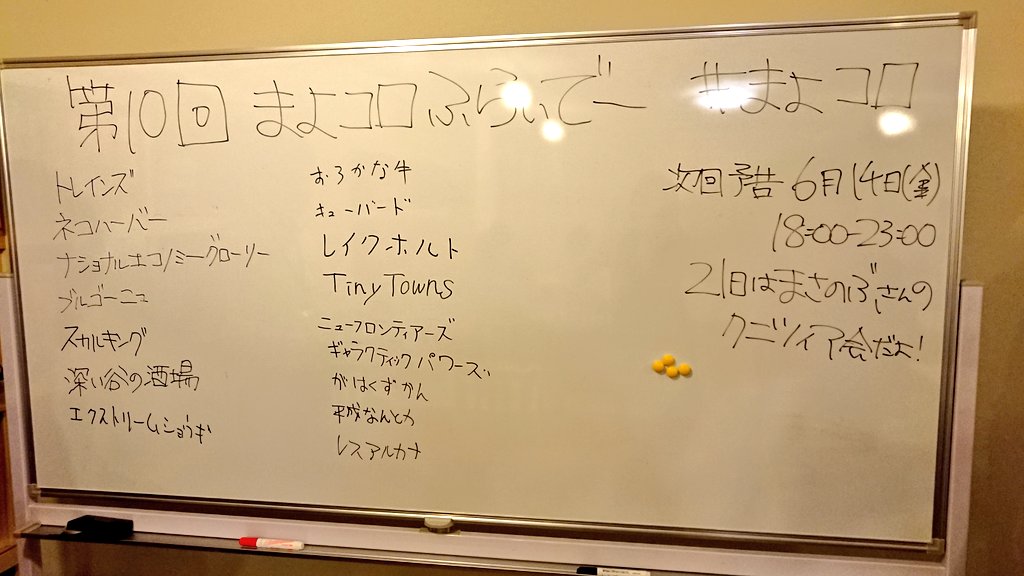 第10回 まよコロふらいでー #まよコロ
トレインズ
ネコハーバー
ナショナルエコノミーグローリー
ブルゴーニュ
スカルキング
深い谷の酒場
エクストリームショウギ
おろかな牛
キューバード
レイクホルト
Tiny Towns
ニューフロンティアーズ
ギャラクティックパワーズ
がはくずかん
平成なんとか
レスアルカナ
次回予告 6月14日(金)
18:00-23:00
21日はまさのぶさんの
クニツィア会だよ!